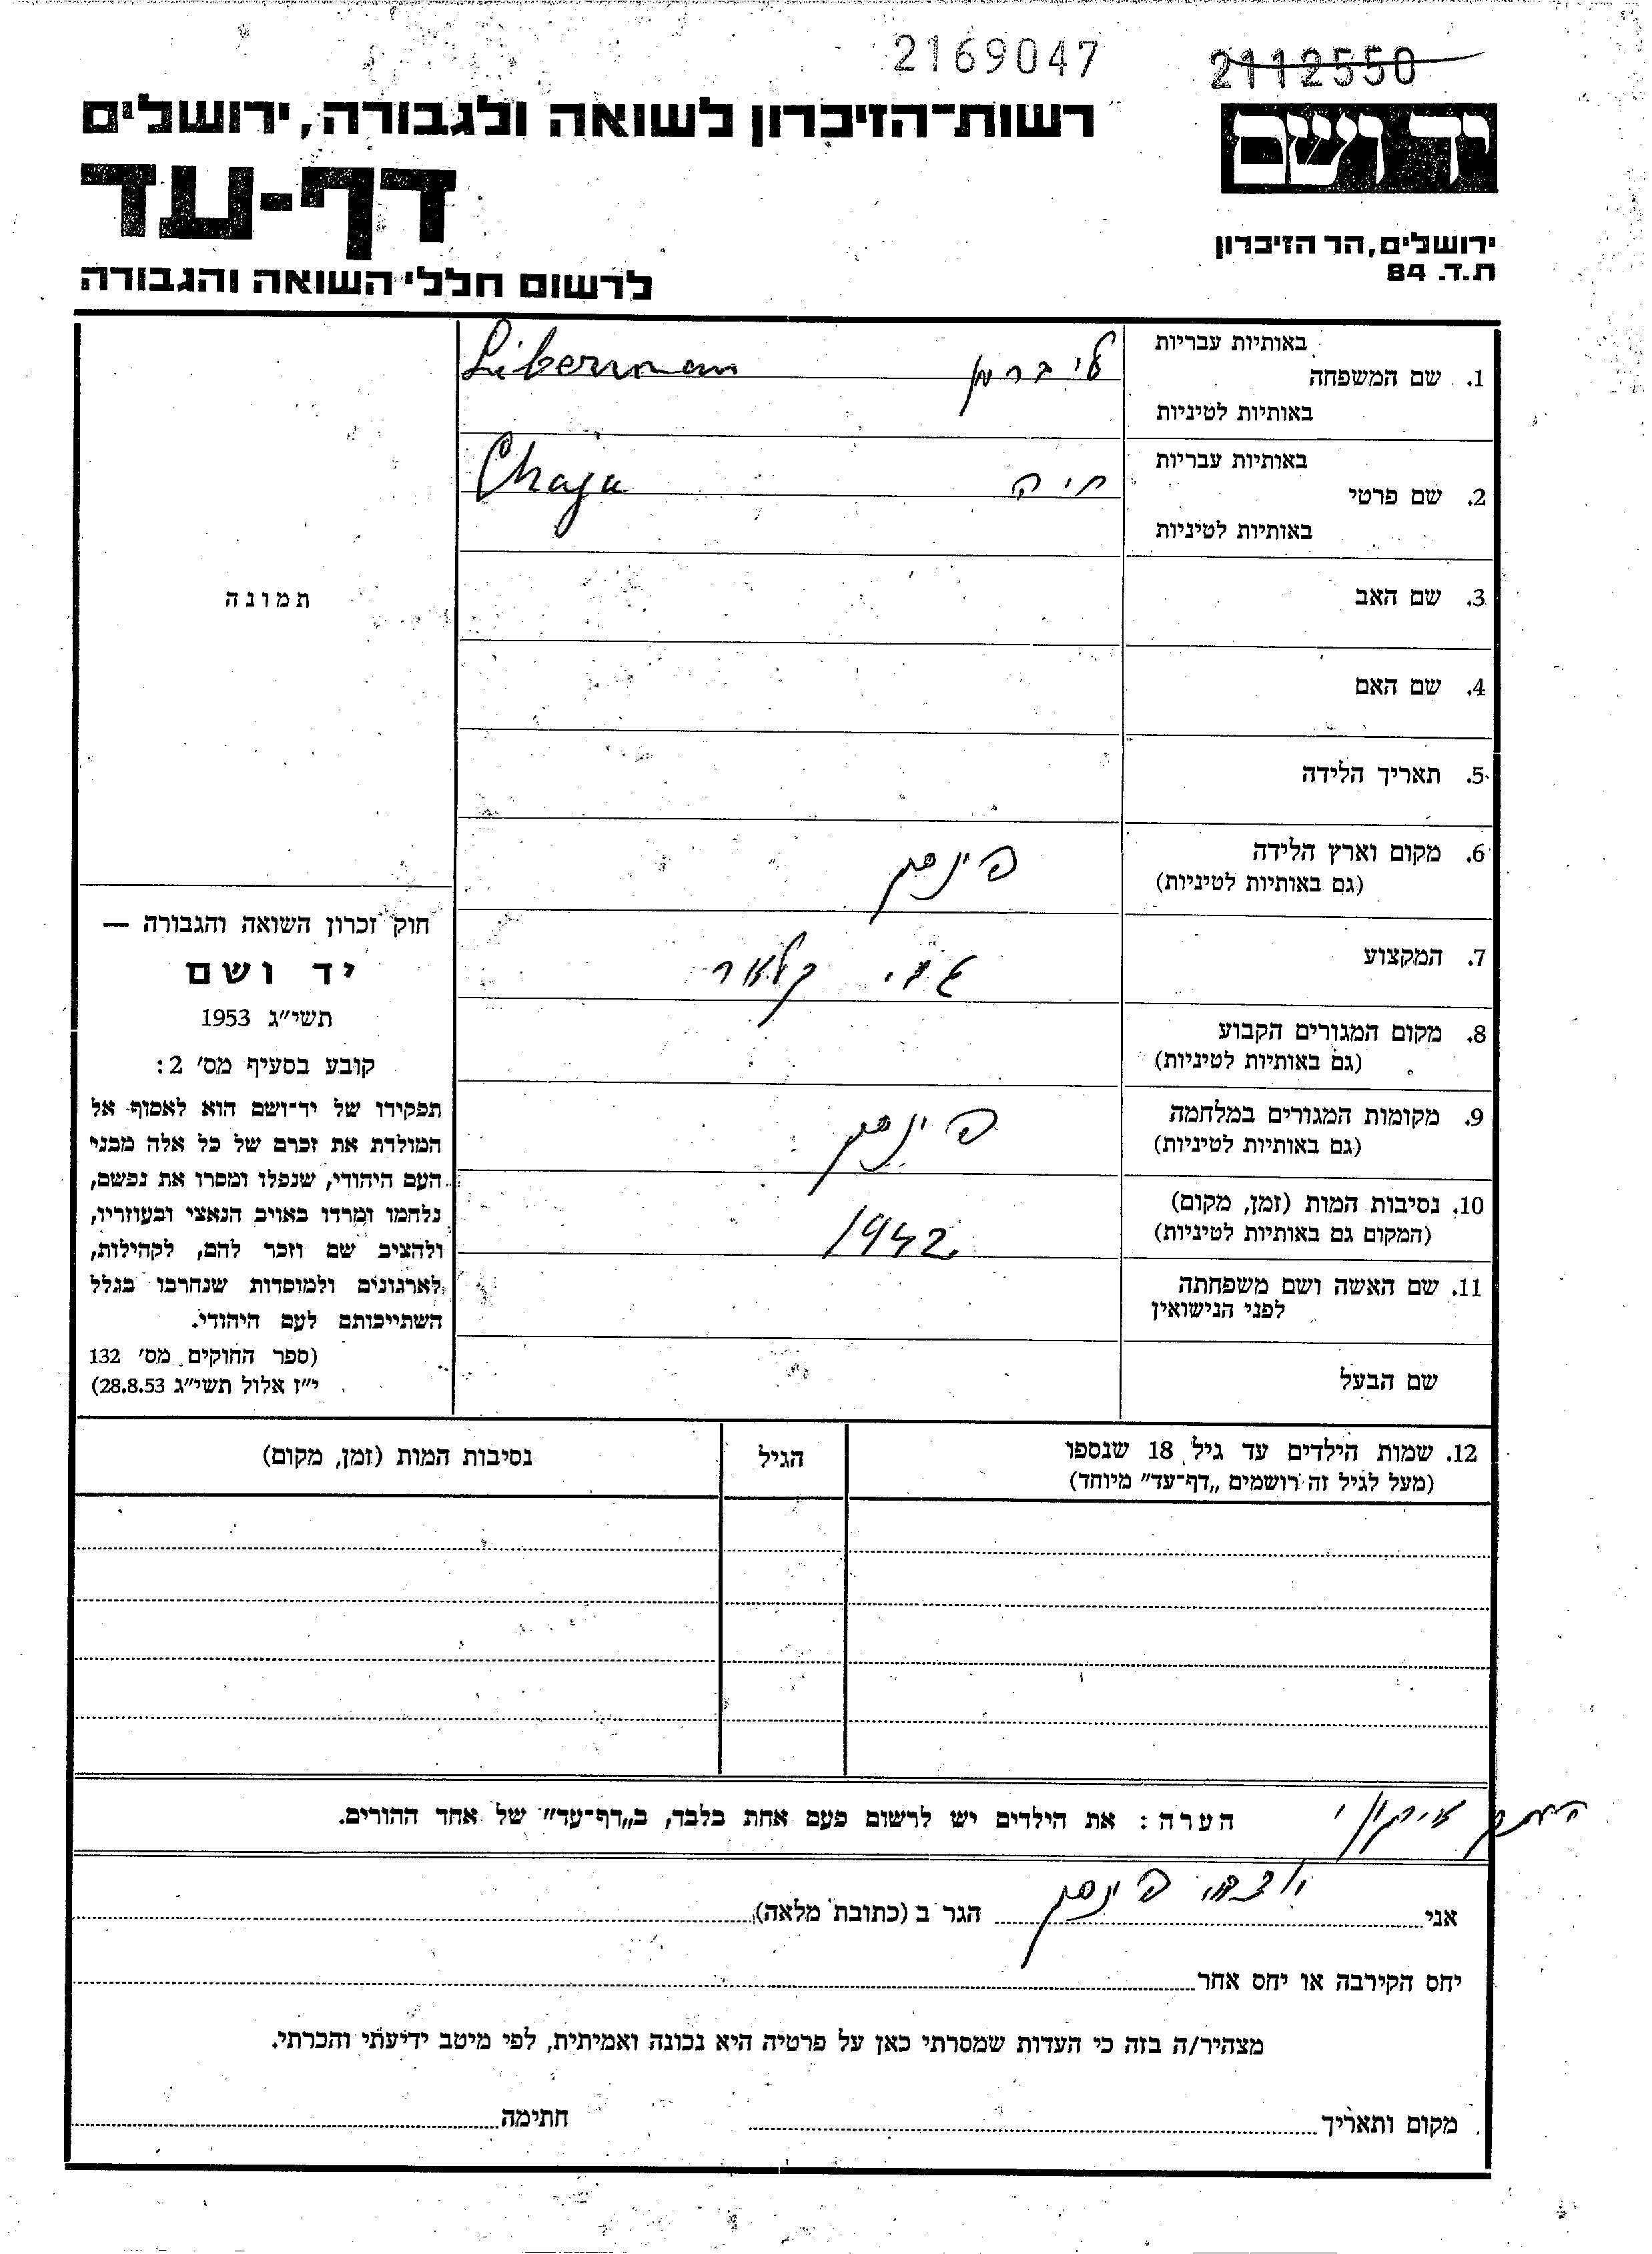 2169047
2112550
יד ושם
רשות־הזיכרון לשואה ולגבורה, ירושלים
דף-עד
ירושלים, הר הזיכרון
ת.ד. 84
לרשום חללי השואה והגבורה
באותיות עבריות
1. שם המשפחה
באותיות לטיניות
ליברמן
Liberman
באותיות עבריות
2. שם פרטי
באותיות לטיניות
חיה
Chaja
3. שם האב
4. שם האם
5. תאריך הלידה
6. מקום וארץ הלידה
(גם באותיות לטיניות)
פינסק
7. המקצוע
8. מקום המגורים הקבוע
(גם באותיות לטיניות)
9. מקומות המגורים במלחמה
(גם באותיות לטיניות)
פינסק
10. נסיבות המות (זמן, מקום)
(המקום גם באותיות לטיניות)
1942
11. שם האשה ושם משפחתה
לפני הנישואין
שם הבעל
תמונה
חוק זכרון השואה והגבורה —
יד ושם
תשי״ג 1953
קובע בסעיף מס׳ 2:
תפקידו של יד־ושם הוא לאסוף אל
המולדת את זכרם של כל אלה מבני
העם היהודי, שנפלו ומסרו את נפשם,
נלחמו ומרדו באויב הנאצי ובעוזריו,
ולהציב שם וזכר להם, לקהילות,
לארגונים ולמוסדות שנחרבו בגלל
השתייכותם לעם היהודי.
(ספר החוקים מס׳ 132
י״ז אלול תשי״ג 28.8.53)
12. שמות הילדים עד גיל 18 שנספו
(מעל לגיל זה רושמים „דף־עד״ מיוחד)
הגיל
נסיבות המות (זמן, מקום)
הערה: את הילדים יש לרשום פעם אחת בלבד, ב„דף־עד״ של אחד ההורים.
פינסק
אני
הגר ב (כתובת מלאה)
יחס הקירבה או יחס אחר
מצהיר/ה בזה כי העדות שמסרתי כאן על פרטיה היא נכונה ואמיתית, לפי מיטב ידיעתי והכרתי.
מקום ותאריך
חתימה